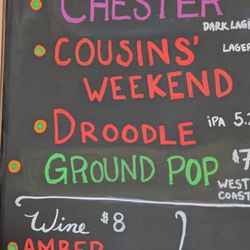 CHESTER
DARK LAG
COUSINS'
LAGER
WEEKEND
DROODLE IPA 5.
GROUND POP $7
WEST
COAST
Wine $8
AMBER